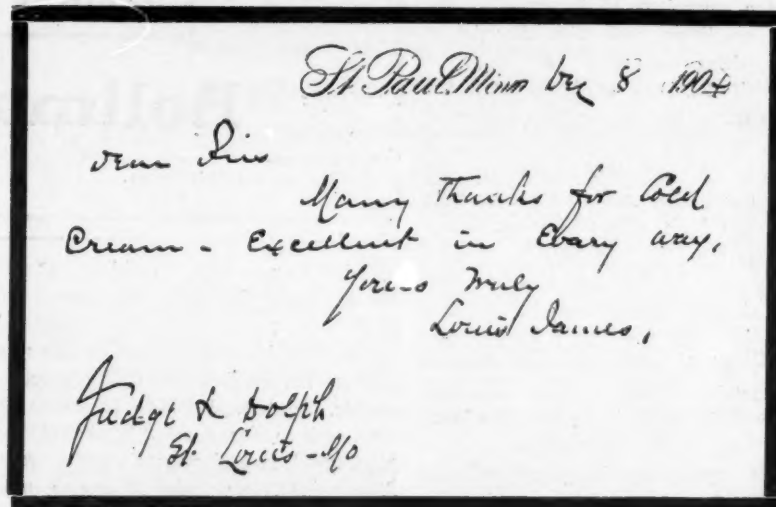 St Paul. Minn Dec 8 1904
Dear Sirs
Many Thanks for Cold
Cream - Excellent in Every way.
Yours Truly
Louis James.
Judge & Dolph
St. Louis - Mo